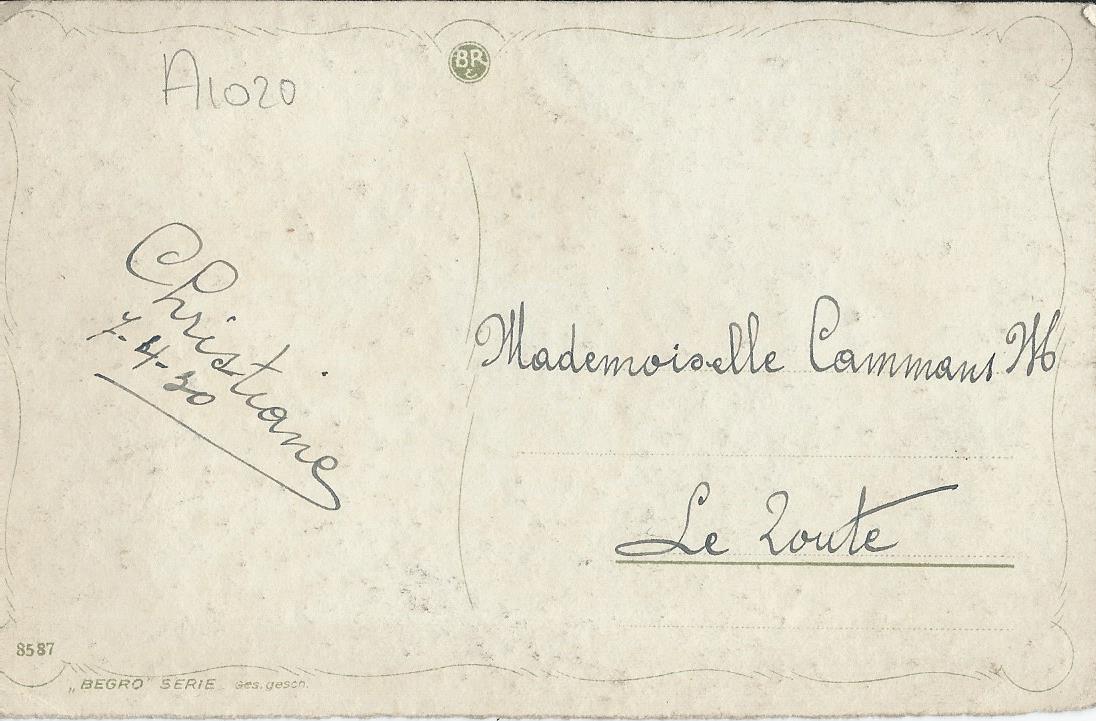 A1020
BR
&
Christiane
7-4-30
Mademoiselle Cammans M
Le Zoute
8587
„BEGRO" SERIE Ges. gesch.